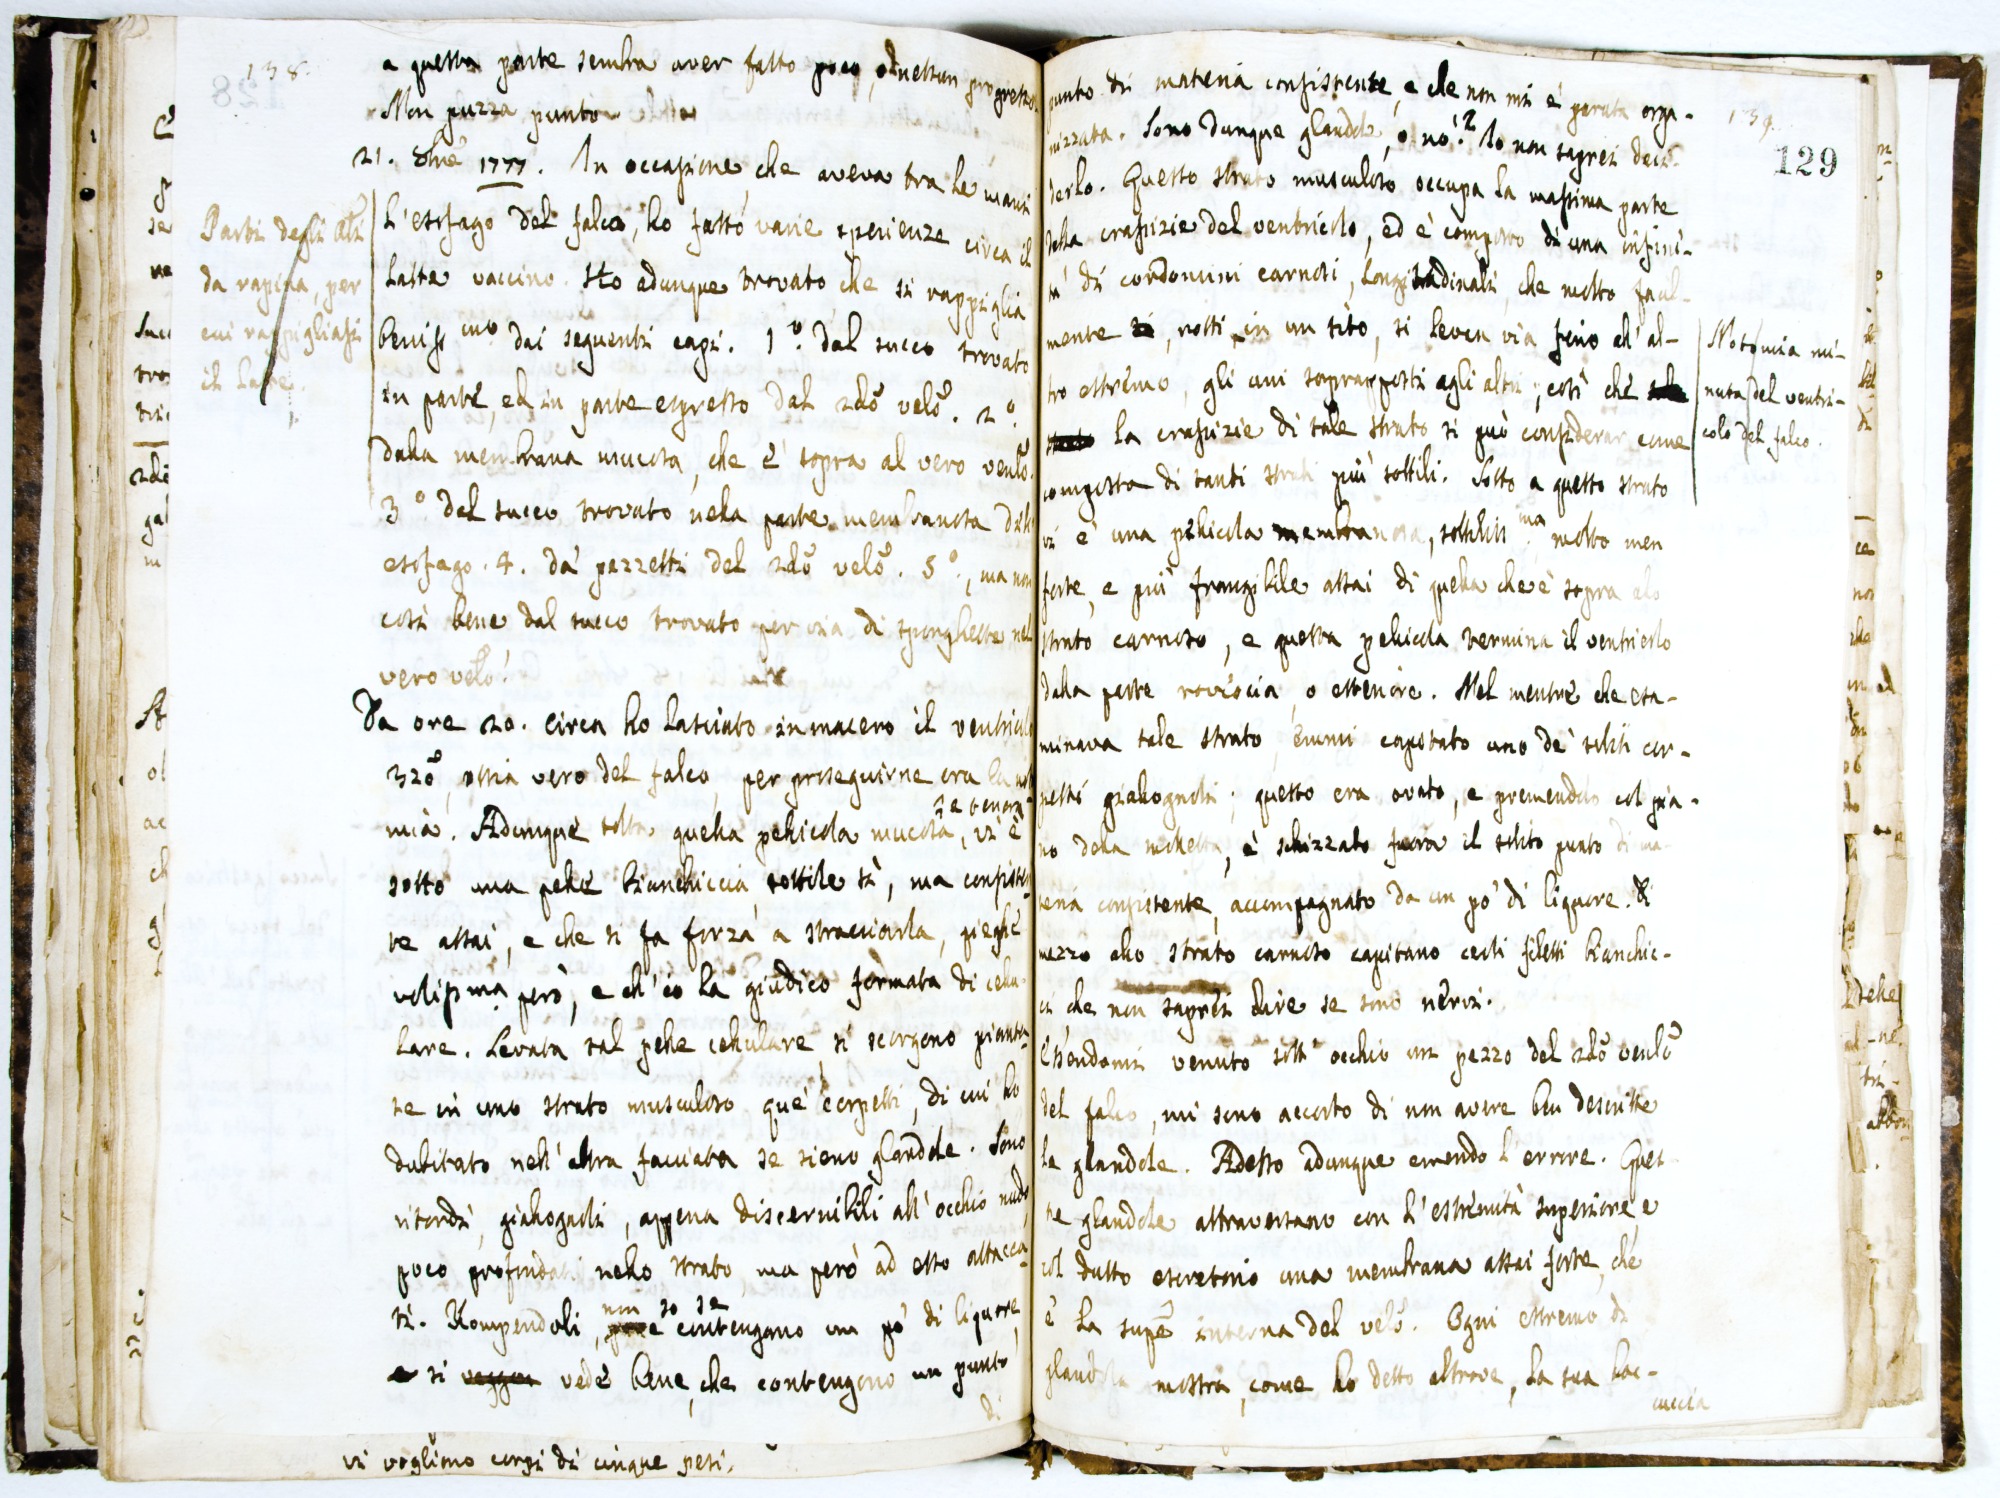 138.
a questa parte sembra aver fatto poco, o nessun progresso.
Non puzza punto.
21. Xbre 1777. In occasione che aveva tra le mani
l'esofago del falco, ho fatto varie sperienze circa il
latte vaccino. Ho adunque trovato che si rappiglia
beniss.mo dai seguenti capi. 1.º dal succo trovato
in parte, ed in parte espresso dal 2do velo. 2.º
dalla membrana mucosa, che è sopra al vero venlo.
3º dal succo trovato nella parte membranosa dell'
esofago. 4. da' pezzetti del 2do velo. 5º, ma non
così bene dal succo trovato per via di spunghette nel
vero velo.
Parti degli Ucc
da rapina, per
cui rappigliasi
il latte.
Da ore 20. circa ho lasciato in macero il ventricolo
3zo, ossia vero del falco, per proseguirne ora la noto
mia. Adunque tolta quella pellicola mucosa, vi è
sotto una pelle bianchiccia, sottile sì, ma consisten
te assai, e che si fa forza a stracciarla, pieghe
volissima però, e ch'io la giudico formata di cellu
lare. Levata tal pelle cellulare, si scorgono pianta
te in uno strato musculoso que' corpetti, di cui ho
dubitato nell'altra facciata se sieno glandole. Sono
ritondi, giallognoli, appena discernibili all'occhio nudo,
poco profondati nello strato ma però ad esso attacca
ti. Rompendoli, non so se contengano un po' di liquore,
e si vede bene, che contengono un punto
di
vi vogliono corpi di cinque pesi.
139.
129
punto di materia consistente, e che non mi è paruta orga-
nizzata. Sono dunque glandole, o nò? Io non saprei deci-
derlo. Questo strato musculoso occupa la massima parte
della crassizie del ventricolo, ed è composto di una infini-
tà di cordoncini carnosi, longitudinali, che molto facil-
mente, rotti in un sito, si levan via fino all'al-
tro estremo, gli uni soprapposti agli altri; così che
la crassizie di tale strato si può considerar come
composta di tanti strati più sottili. Sotto a questo strato
vi è una pellicola membranosa, sottiliss.ma, molto men
forte, e più frangibile assai di quella che è sopra alo
strato carnoso, e questa pellicola termina il ventricolo
dalla parte rovescia, o esteriore. Nel mentre che esa-
minava tale strato, emmi capitato uno de' soliti cor-
petti giallognoli; questo era ovato, e premendolo col pia-
no della molletta, è schizzato fuora il solito punto di ma-
teria consistente, accompagnato da un po' di liquore. Di
mezzo allo strato carnoso capitano certi filetti bianchic-
ci, che non saprei dire se sono nervi.
Essendomi venuto sott'occhio un pezzo del 2do venlo
del falco, mi sono accorto di non avere ben descritte
le glandole. Adesso adunque emendo l'errore. Ques-
te glandole attraversano con l'estremità superiore, e
col dutto escretorio una membrana assai forte, che
è la supe interna del velo. Ogni estremo di
glandola mostra, come ho detto altrove, la sua boc-
cuccia
Notomia mi-
nuta del ventri-
colo del falco.